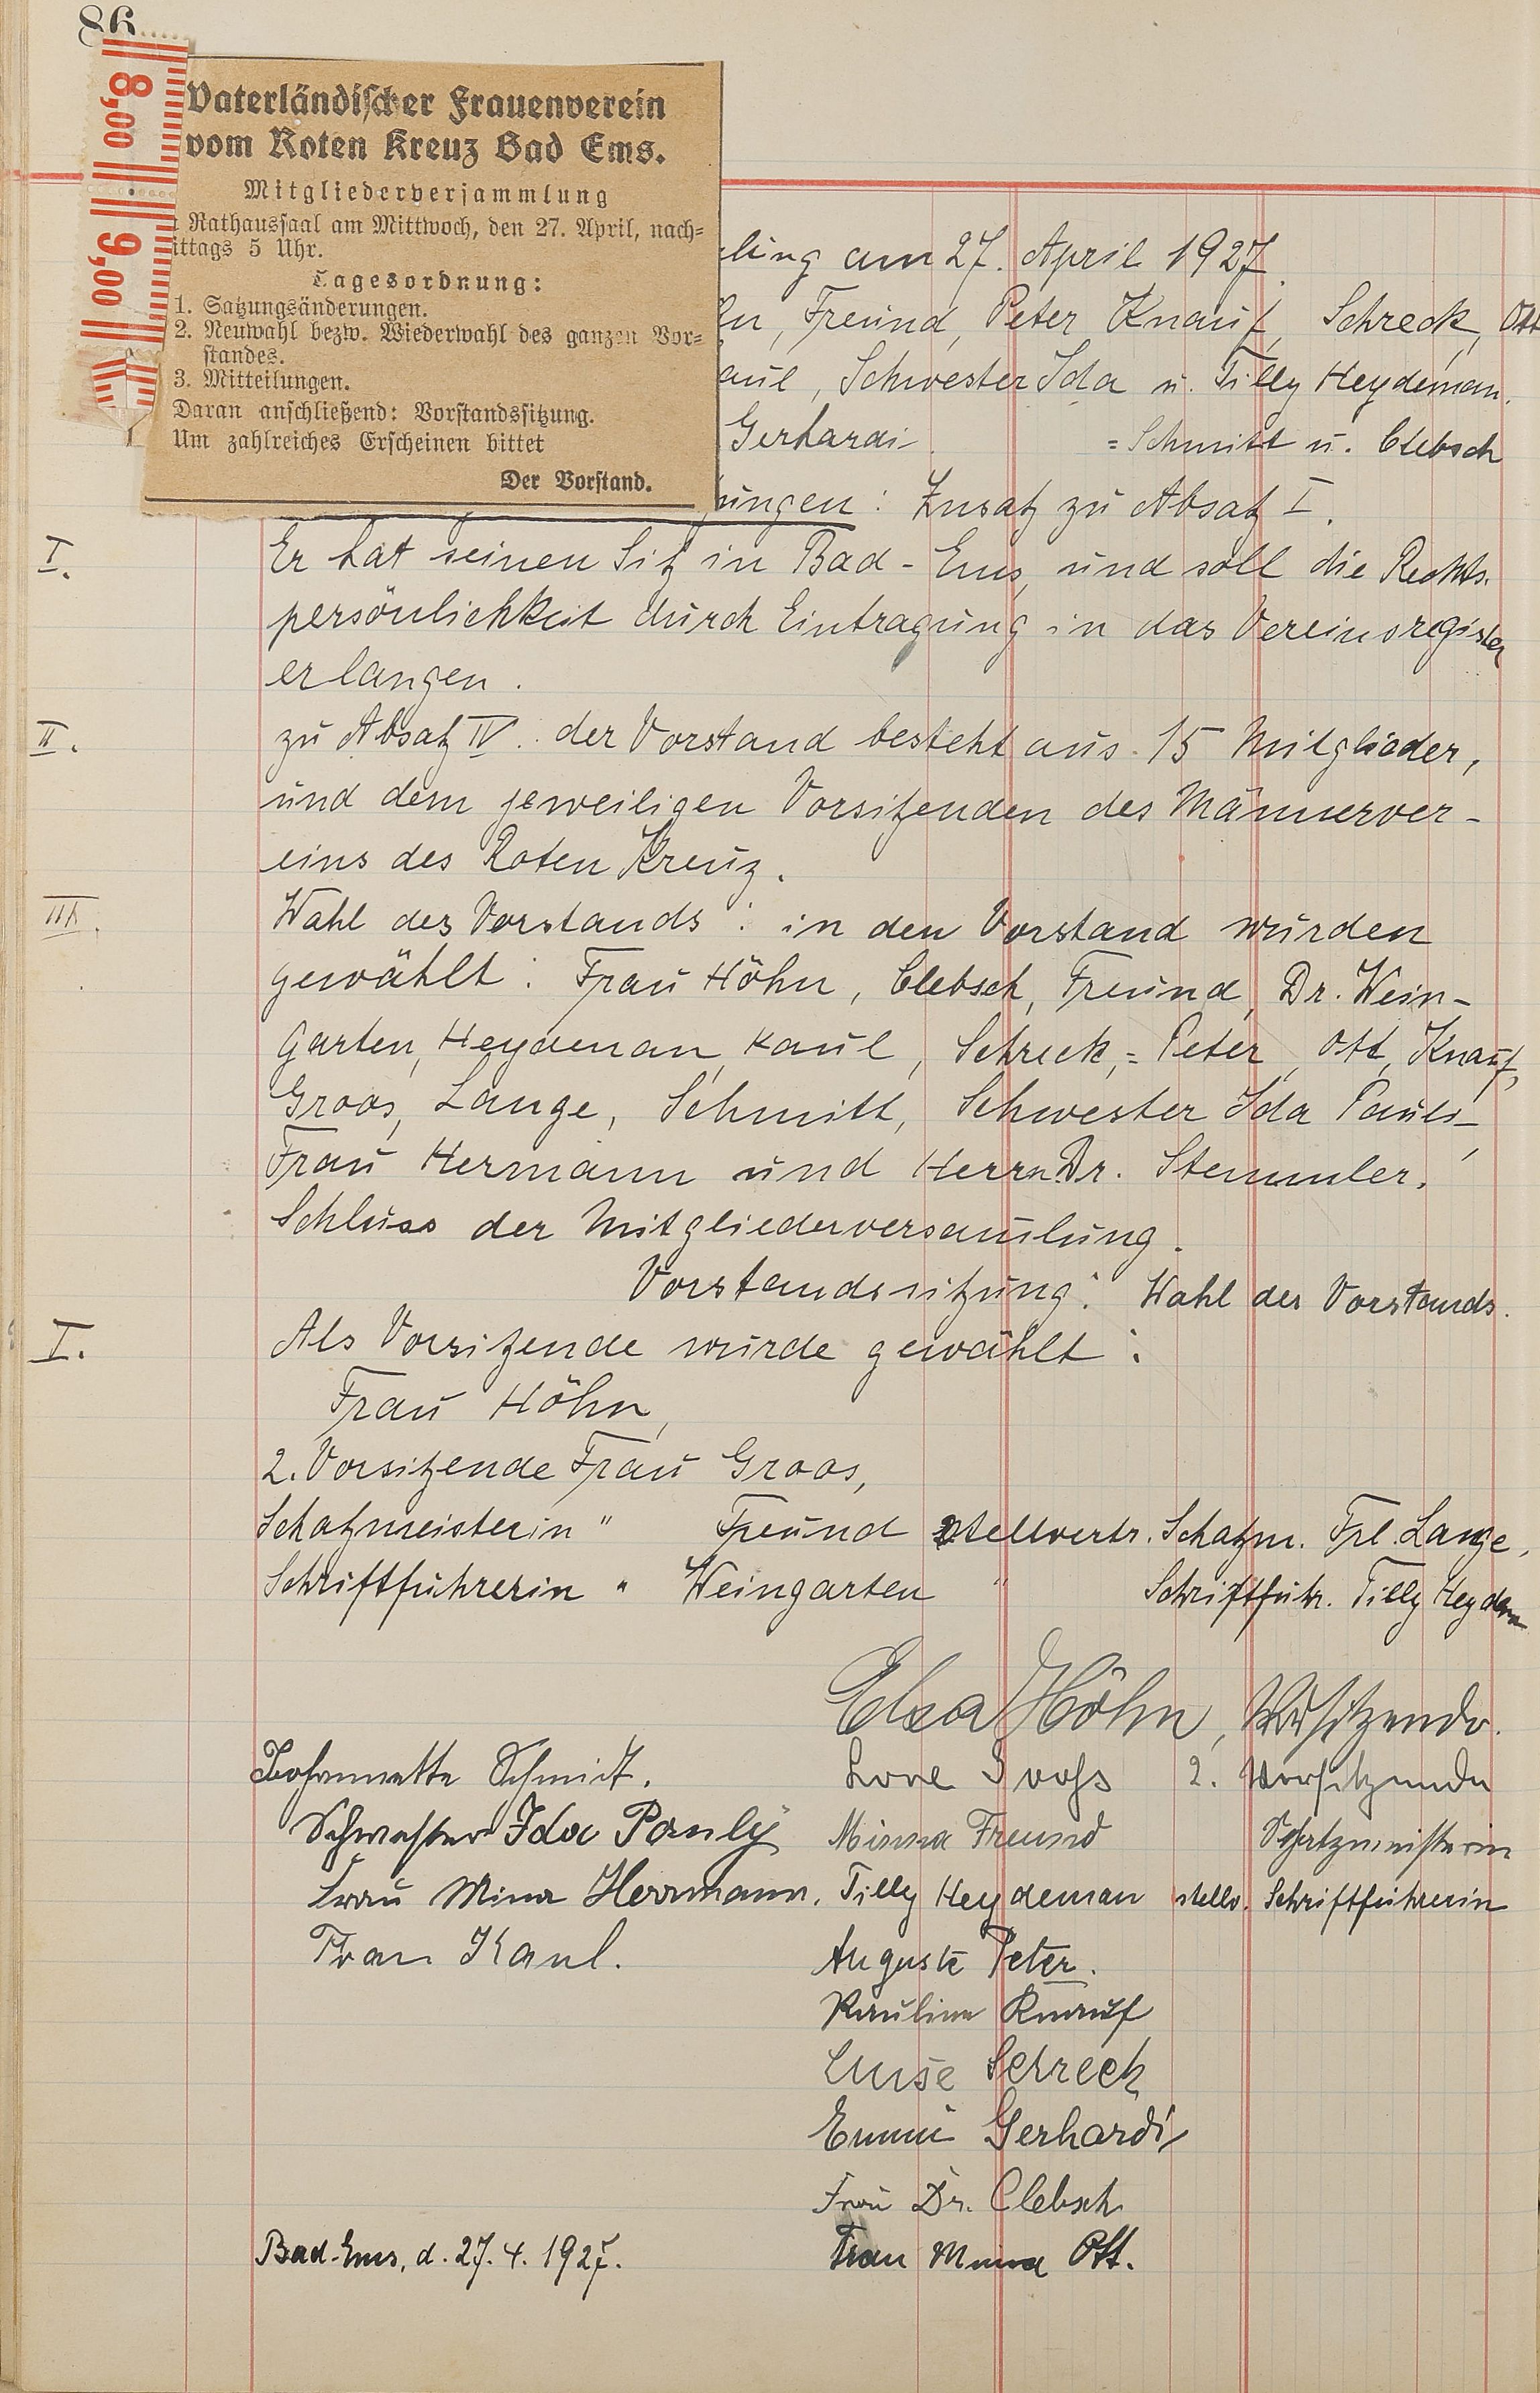 86
8,00
9,00
Vaterländischer Frauenverein
vom Roten Kreuz Bad Ems.
Mitgliederversammlung
Rathaussaal am Mittwoch, den 27. April, nach-
ittags 5 Uhr.
Tagesordnung:
1. Satzungsänderungen.
2. Neuwahl bezw. Wiederwahl des ganzen Vor-
standes.
3. Mitteilungen.
Daran anschließend: Vorstandssitzung.
Um zahlreiches Erscheinen bittet
Der Vorstand.
lung am 27. April 1927.
hn, Freund, Peter Knauf, Schreck, Ott
aul, Schwester Ida u. Tilly Heydeman.
Gerhardi = Schmitt u. Clebsch
ungen: Zusatz zu Absatz I.
I. Er hat seinen Sitz in Bad-Ems, und soll die Rechts-
persönlichkeit durch Eintragung in das Vereinsregister
erlangen.
II. zu Absatz IV. der Vorstand besteht aus 15 Mitglieder,
und dem jeweiligen Vorsitzenden des Männerver-
eins des Roten Kreuz.
III. Wahl des Vorstands: in den Vorstand wurden
gewählt: Frau Höhn, Clebsch, Freund, Dr. Wein-
garten, Heydeman, Kaul, Schreck, = Peter, Ott, Knauf,
Groos, Lange, Schmitt, Schwester Ida Pauli,
Frau Hermann und Herrn Dr. Stemmler.
Schluss der Mitgliederversamlung.
Vorstandssitzung: Wahl des Vorstands.
I. Als Vorsitzende wurde gewählt:
Frau Höhn,
2. Vorsitzende Frau Groos,
Schatzmeisterin " Freund stellvertr. Schatzm. Frl. Lange,
Schriftführerin " Weingarten " Schriftführ. Tilly Heydeman
Elsa Höhn, Vorsitzende.
Johannette Schmidt. Groos 2. Vorsitzende
Schwester Ida Pauly Minna Freund Schatzmeisterin
Frau Mina Herrmann. Tilly Heydeman stellv. Schriftführerin
Frau Kaul. Auguste Peter.
Pauline Knauf
Luise Schreck
Emmi Gerhardi
Frau Dr. Clebsch
Bad-Ems, d. 27.4.1927. Frau Minna Ott.